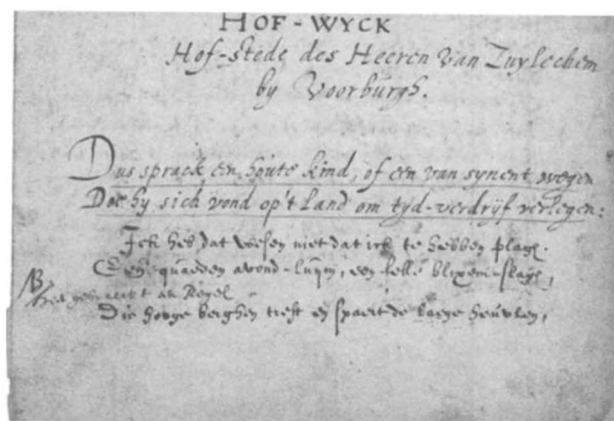 HOF-WYCK
Hof-stede des Heeren van Zuylechem
by Voorburgh.
Dus sprack een houte kind, of een van synent wegen
Doe hy sich vond op't Land om tyd-verdrijf verlegen:
Ick heb dat wesen niet dat ick te hebben plagh.
Een quaeden avond-luym, een felle blixem-slagh,
NB
hier gebreeckt een Regel
Die hooge berghen treft en spaert de laege heuvelen,